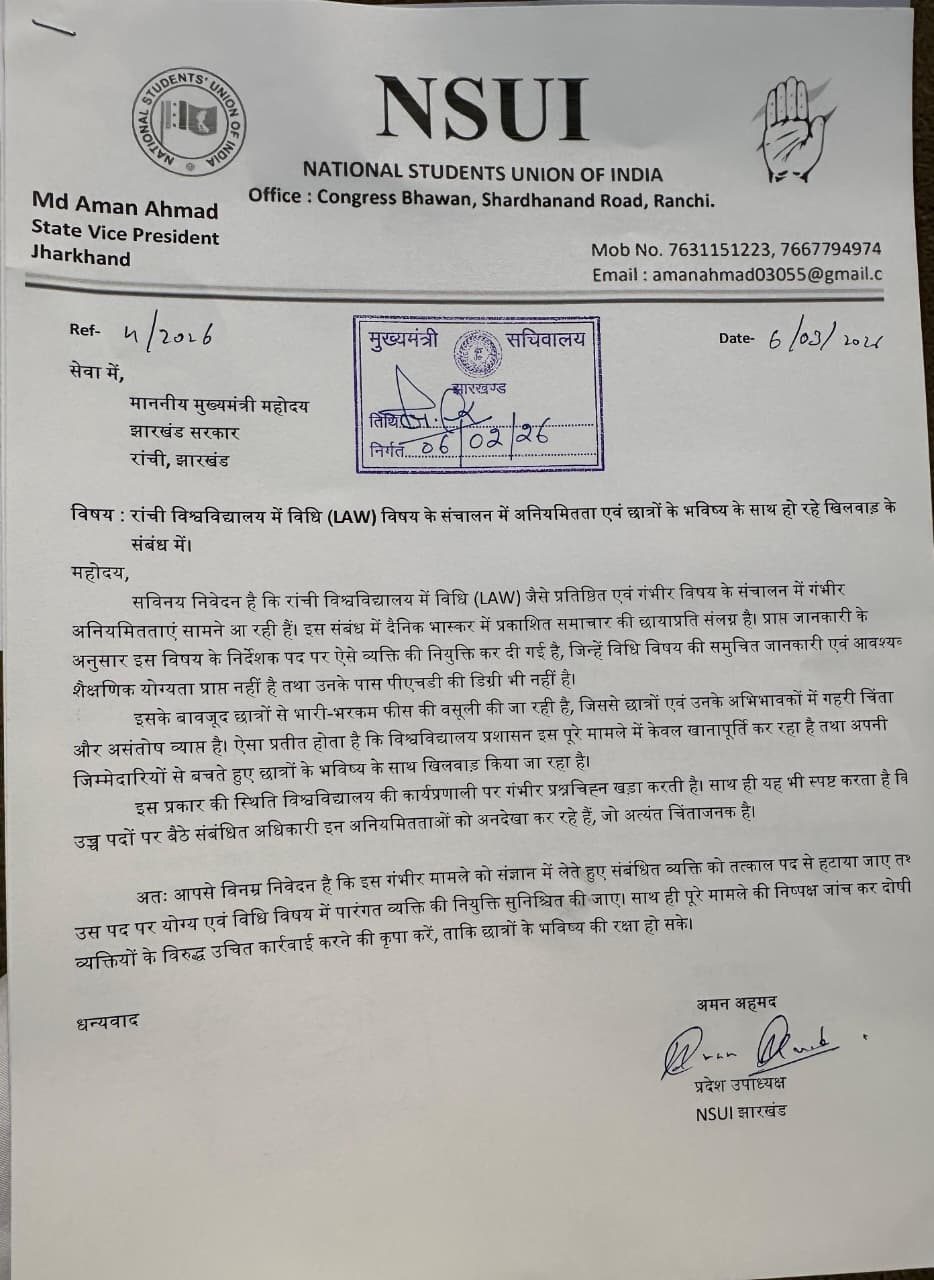 NATIONAL STUDENTS' UNION OF INDIA
NSUI
NATIONAL STUDENTS UNION OF INDIA
Office : Congress Bhawan, Shardhanand Road, Ranchi.
Md Aman Ahmad
State Vice President
Jharkhand
Mob No. 7631151223, 7667794974
Email : amanahmad03055@gmail.c
Ref- 4/2026
Date- 6/03/2026
मुख्यमंत्री सचिवालय
झारखण्ड
तिथि
निर्गत 06/02/26
सेवा में,
माननीय मुख्यमंत्री महोदय
झारखंड सरकार
रांची, झारखंड
विषय : रांची विश्वविद्यालय में विधि (LAW) विषय के संचालन में अनियमितता एवं छात्रों के भविष्य के साथ हो रहे खिलवाड़ के
संबंध में।
महोदय,
सविनय निवेदन है कि रांची विश्वविद्यालय में विधि (LAW) जैसे प्रतिष्ठित एवं गंभीर विषय के संचालन में गंभीर
अनियमितताएं सामने आ रही हैं। इस संबंध में दैनिक भास्कर में प्रकाशित समाचार की छायाप्रति संलग्न है। प्राप्त जानकारी के
अनुसार इस विषय के निर्देशक पद पर ऐसे व्यक्ति की नियुक्ति कर दी गई है, जिन्हें विधि विषय की समुचित जानकारी एवं
शैक्षणिक योग्यता प्राप्त नहीं है तथा उनके पास पीएचडी की डिग्री भी नहीं है।
इसके बावजूद छात्रों से भारी-भरकम फीस की वसूली की जा रही है, जिससे छात्रों एवं उनके अभिभावकों में गहरी चिंता
और असंतोष व्याप्त है। ऐसा प्रतीत होता है कि विश्वविद्यालय प्रशासन इस पूरे मामले में केवल खानापूर्ति कर रहा है तथा अपनी
जिम्मेदारियों से बचते हुए छात्रों के भविष्य के साथ खिलवाड़ किया जा रहा है।
इस प्रकार की स्थिति विश्वविद्यालय की कार्यप्रणाली पर गंभीर प्रश्नचिह्न खड़ा करती है। साथ ही यह भी स्पष्ट करता है
उच्च पदों पर बैठे संबंधित अधिकारी इन अनियमितताओं को अनदेखा कर रहे हैं, जो अत्यंत चिंताजनक है।
अतः आपसे विनम्र निवेदन है कि इस गंभीर मामले को संज्ञान में लेते हुए संबंधित व्यक्ति को तत्काल पद से हटाया जाए
उस पद पर योग्य एवं विधि विषय में पारंगत व्यक्ति की नियुक्ति सुनिश्चित की जाए। साथ ही पूरे मामले की निष्पक्ष जांच कर दोषी
व्यक्तियों के विरुद्ध उचित कार्रवाई करने की कृपा करें, ताकि छात्रों के भविष्य की रक्षा हो सके।
धन्यवाद
अमन अहमद
प्रदेश उपाध्यक्ष
NSUI झारखंड